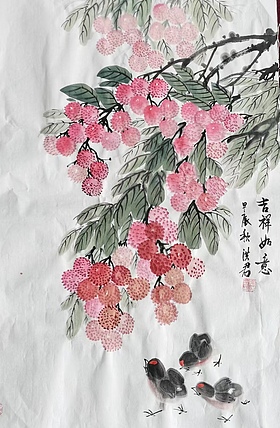 吉祥如意
甲辰秋